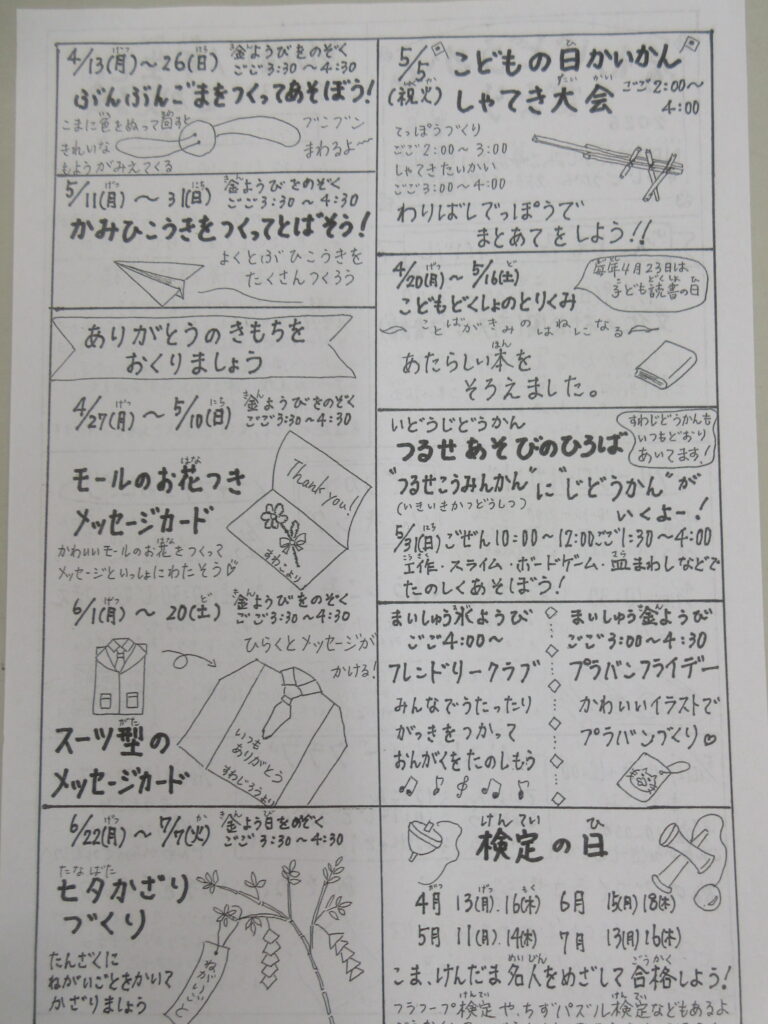 4/13(月)～26(日) 金ようびをのぞく
ごご3:30～4:30
ぶんぶんごまをつくってあそぼう!
こまに色をぬって回すと
きれいな
もようがみえてくる
ブンブン
まわるよ～
5/11(月)～31(日) 金ようびをのぞく
ごご3:30～4:30
かみひこうきをつくってとばそう!
よくとぶひこうきを
たくさんつくろう
ありがとうのきもちを
おくりましょう
4/27(月)～5/10(日) 金ようびをのぞく
ごご3:30～4:30
モールのお花つき
メッセージカード
かわいいモールのお花をつくって
メッセージといっしょにわたそう♡
Thank you!
すわこより
6/1(月)～20(土) 金ようびをのぞく
ごご3:30～4:30
ひらくとメッセージが
かける!
スーツ型の
メッセージカード
いつも
ありがとう
すわじろうより
6/22(月)～7/7(火) 金ようびをのぞく
ごご3:30～4:30
七夕かざり
づくり
たんざくに
ねがいごとをかいて
かざりましょう
ねがいごと
5/5(祝火) こどもの日かいかん
しゃてき大会 ごご2:00～
4:00
てっぽうづくり
ごご2:00～3:00
しゃてきたいかい
ごご3:00～4:00
わりばしでっぽうで
まとあてをしよう!!
4/20(月)～5/16(土)
毎年4月23日は
子ども読書の日
こどもどくしょのとりくみ
～ことばがきみのはねになる～
あたらしい本を
そろえました。
いどうじどうかん
つるせあそびのひろば
すわじどうかんも
いつもどおり
あいてます!
"つるせこうみんかん"に"じどうかん"が
(いきいきかつどうしつ)
いくよー!
5/31(日)ごぜん10:00～12:00ごご1:30～4:00
工作・スライム・ボードゲーム・皿まわしなどで
たのしくあそぼう!
まいしゅう水ようび
ごご4:00～
フレンドリークラブ
みんなでうたったり
がっきをつかって
おんがくをたのしもう
まいしゅう金ようび
ごご3:00～4:30
プラバンフライデー
かわいいイラストで
プラバンづくり♡
検定の日
4月 13(月).16(木) 6月 15(月)18(木)
5月 11(月).14(木) 7月 13(月)16(木)
こま、けんだま名人をめざして合格しよう!
フラフープ検定や、ちずパズル検定などもあるよ